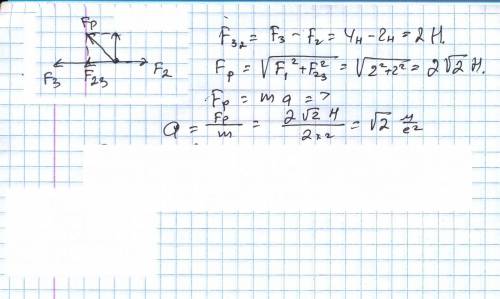 Fр
F3 F23 F2
F32 = F3 − F2 = 4н − 2н = 2 Н.
Fр = √(F1² + F23²) = √(2² + 2²) = 2√2 Н.
Fр = m a = >
a = Fр/m = 2√2 Н / 2кг = √2 м/с²